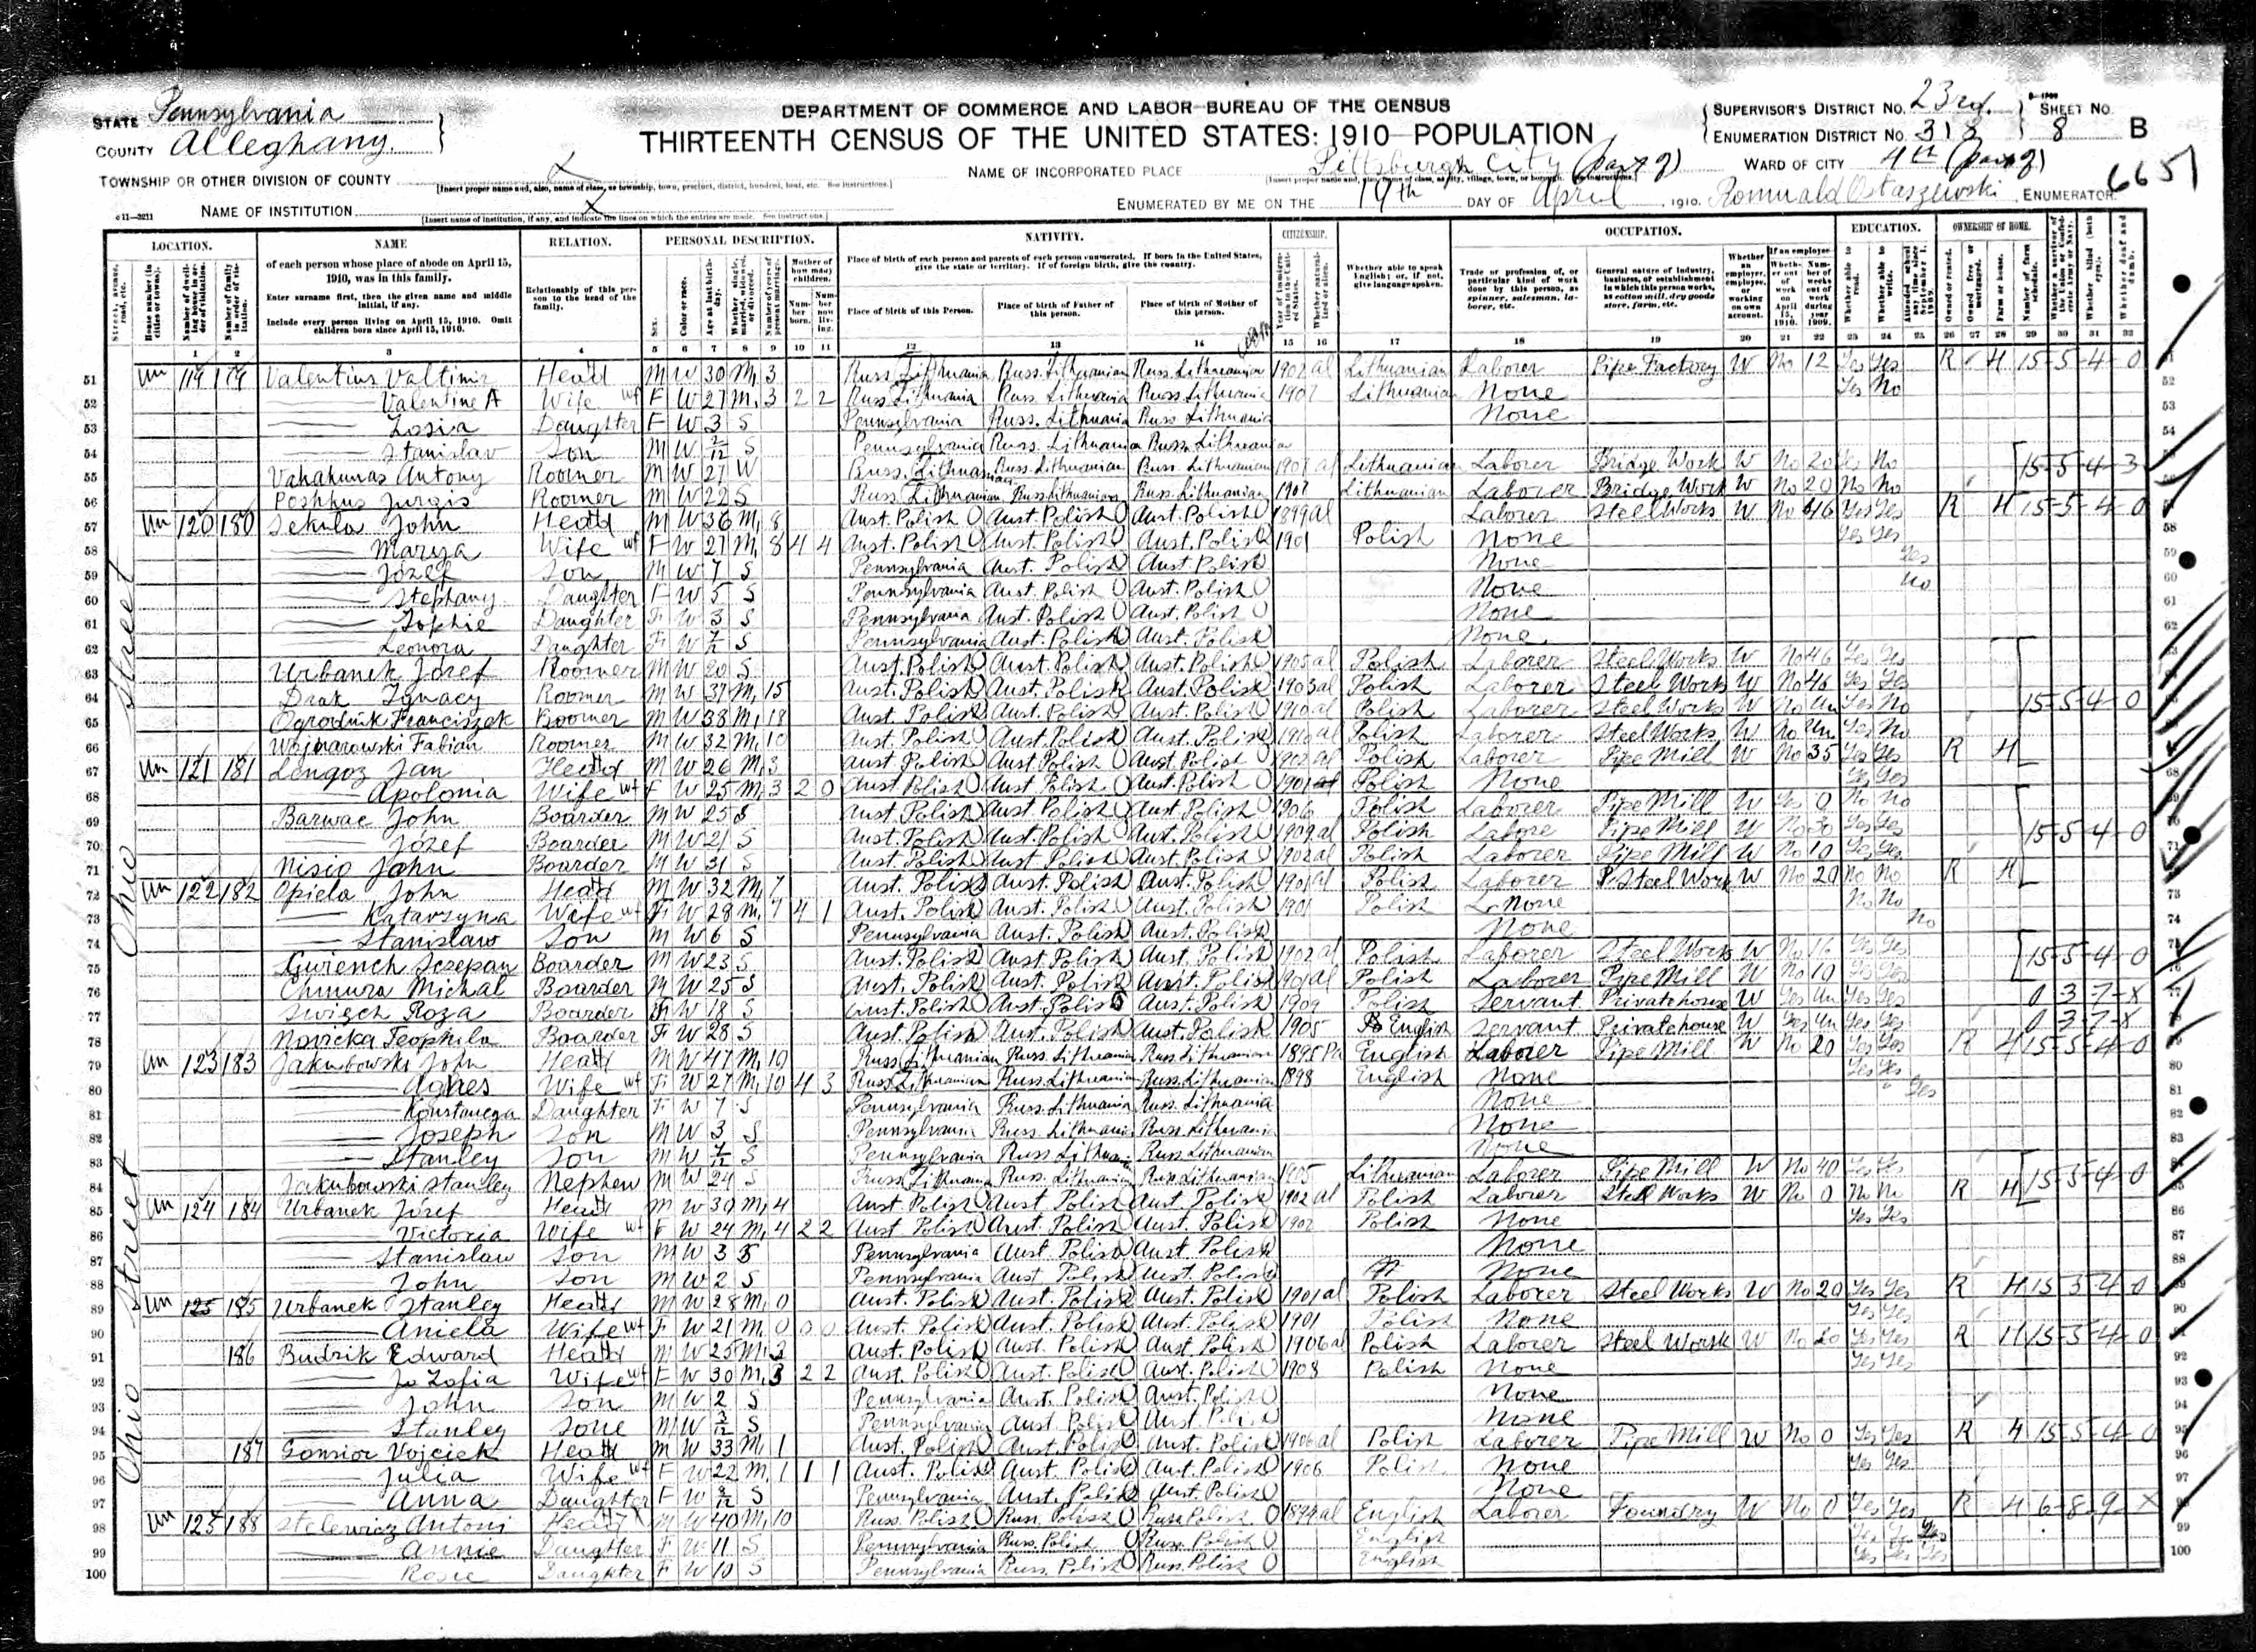 DEPARTMENT OF COMMERCE AND LABOR—BUREAU OF THE CENSUS
THIRTEENTH CENSUS OF THE UNITED STATES: 1910—POPULATION
STATE Pennsylvania
COUNTY Alleghany.
TOWNSHIP OR OTHER DIVISION OF COUNTY X
[Insert proper name and, also, name of class, as township, town, precinct, district, hundred, beat, etc. See instructions.]
NAME OF INSTITUTION X
[Insert name of institution, if any, and indicate the lines on which the entries are made. See instructions.]
NAME OF INCORPORATED PLACE Pittsburgh City (part of)
ENUMERATED BY ME ON THE 19th DAY OF April, 1910. Romuald Ostaszewski, ENUMERATOR
SUPERVISOR'S DISTRICT NO. 23rd. SHEET NO.
ENUMERATION DISTRICT NO. 313 8 B
WARD OF CITY 4th (part of)
6651
c11—3211
LOCATION. NAME RELATION. PERSONAL DESCRIPTION. NATIVITY. CITIZENSHIP. OCCUPATION. EDUCATION. OWNERSHIP OF HOME.
of each person whose place of abode on April 15, 1910, was in this family.
Enter surname first, then the given name and middle initial, if any.
Include every person living on April 15, 1910. Omit children born since April 15, 1910.
Relationship of this person to the head of the family.
Place of birth of each person and parents of each person enumerated. If born in the United States, give the state or territory. If of foreign birth, give the country.
Place of birth of this Person. Place of birth of Father of this person. Place of birth of Mother of this person.
Whether able to speak English; or, if not, give language spoken.
Trade or profession of, or particular kind of work done by this person, as spinner, salesman, laborer, etc.
General nature of industry, business, or establishment in which this person works, as cotton mill, dry goods store, farm, etc.
Ohio Street
51 Un 119 179 Valentius Valtimir Head M W 30 M1 3 Russ. Lithuania Russ. Lithuanian Russ. Lithuanian 1902 al Lithuanian Laborer Pipe Factory W No 12 Yes Yes R H 15-5-4-0
52 Valentine A Wife F W 27 M1 3 2 2 Russ. Lithuania Russ. Lithuania Russ. Lithuania 1907 Lithuanian None Yes No
53 Zosia Daughter F W 3 S Pennsylvania Russ. Lithuania Russ. Lithuania None
54 Stanislav Son M W 2/12 S Pennsylvania Russ. Lithuania Russ. Lithuania
55 Vahakunas Antony Roomer M W 27 W Russ. Lithuanian Russ. Lithuanian Russ. Lithuanian 1907 al Lithuanian Laborer Bridge Work W No 20 Yes No 15-5-4-3
56 Poshkus Jurgis Roomer M W 22 S Russ. Lithuanian Russ. Lithuanian Russ. Lithuanian 1907 Lithuanian Laborer Bridge Work W No 20 No No
57 Un 120 180 Sekula John Head M W 36 M1 8 Aust. Polish Aust. Polish Aust. Polish 1899 al Laborer Steel Works W No 46 Yes Yes R H 15-5-4-0
58 Marya Wife F W 27 M1 8 4 4 Aust. Polish Aust. Polish Aust. Polish 1901 Polish None Yes Yes
59 Jozef Son M W 7 S Pennsylvania Aust. Polish Aust. Polish None Yes
60 Stephany Daughter F W 5 S Pennsylvania Aust. Polish Aust. Polish None No
61 Sophie Daughter F W 3 S Pennsylvania Aust. Polish Aust. Polish None
62 Leonora Daughter F W S Pennsylvania Aust. Polish Aust. Polish None
63 Urbanek Jozef Roomer M W 20 S Aust. Polish Aust. Polish Aust. Polish 1905 al Polish Laborer Steel Works W No 46 Yes Yes
64 Drak Ignacy Roomer M W 37 M1 15 Aust. Polish Aust. Polish Aust. Polish 1903 al Polish Laborer Steel Works W No 46 Yes Yes 15-5-4-0
65 Ogrodnik Franciszek Roomer M W 38 M1 18 Aust. Polish Aust. Polish Aust. Polish 1910 al Polish Laborer Steel Works W No Un Yes No
66 Wojnarowski Fabian Roomer M W 32 M1 10 Aust. Polish Aust. Polish Aust. Polish 1910 al Polish Laborer Steel Works W No Un Yes No
67 Un 121 181 Lengoz Jan Head M W 26 M1 3 Aust. Polish Aust. Polish Aust. Polish 1902 al Polish Laborer Pipe Mill W No 35 Yes Yes R H
68 Apolonia Wife F W 25 M1 3 2 0 Aust. Polish Aust. Polish Aust. Polish 1901 Polish None Yes Yes
69 Barwac John Boarder M W 25 S Aust. Polish Aust. Polish Aust. Polish 1906 Polish Laborer Pipe Mill W Yes 0 No No
70 Jozef Boarder M W 21 S Aust. Polish Aust. Polish Aust. Polish 1909 al Polish Labore Pipe Mill W No 30 Yes Yes 15-5-4-0
71 Nisio John Boarder M W 31 S Aust. Polish Aust. Polish Aust. Polish 1902 al Polish Laborer Pipe Mill W No 10 Yes Yes
72 Un 122 182 Opiela John Head M W 32 M1 7 Aust. Polish Aust. Polish Aust. Polish 1901 al Polish Laborer Steel Work W No 20 No No R H
73 Katarzyna Wife F W 28 M1 7 4 1 Aust. Polish Aust. Polish Aust. Polish 1901 Polish None No No
74 Stanislaw Son M W 6 S Pennsylvania Aust. Polish Aust. Polish None No
75 Gwiench Sczepan Boarder M W 23 S Aust. Polish Aust. Polish Aust. Polish 1902 al Polish Laborer Steel Work W No 16 Yes Yes 15-5-4-0
76 Chmura Michal Boarder M W 25 S Aust. Polish Aust. Polish Aust. Polish 1901 al Polish Laborer Pipe Mill W No 10 Yes Yes
77 Swiech Roza Boarder F W 18 S Aust. Polish Aust. Polish Aust. Polish 1909 Polish Servant Private house W Yes Un Yes Yes 0 3-7-X
78 Novicka Teophila Boarder F W 28 S Aust. Polish Aust. Polish Aust. Polish 1905 English Servant Private house W Yes Un Yes Yes 0 3-7-X
79 Un 123 183 Jakubowski John Head M W 47 M1 10 Russ. Lithuanian Russ. Lithuanian Russ. Lithuanian 1895 Pa English Laborer Pipe Mill W No 20 Yes Yes R H 15-5-4-0
80 Agnes Wife F W 27 M1 10 4 3 Russ. Lithuanian Russ. Lithuania Russ. Lithuanian 1898 English None Yes Yes
81 Konstancya Daughter F W 7 S Pennsylvania Russ. Lithuania Russ. Lithuania None Yes
82 Joseph Son M W 3 S Pennsylvania Russ. Lithuania Russ. Lithuania None
83 Stanley Son M W S Pennsylvania Russ. Lithuanian Russ. Lithuanian None
84 Jakubowski Stanley Nephew M W 24 S Russ. Lithuania Russ. Lithuania Russ. Lithuanian 1905 Lithuanian Laborer Pipe Mill W No 40 Yes Yes 15-5-4-0
85 Un 124 184 Urbanek Jozef Head M W 30 M1 4 Aust. Polish Aust. Polish Aust. Polish 1902 al Polish Laborer Steel Works W No 0 No No R H
86 Victoria Wife F W 24 M1 4 2 2 Aust. Polish Aust. Polish Aust. Polish 1902 Polish None Yes Yes
87 Stanislaw Son M W 3 S Pennsylvania Aust. Polish Aust. Polish None
88 John Son M W 2 S Pennsylvania Aust. Polish Aust. Polish None
89 Un 125 185 Urbanek Stanley Head M W 28 M1 0 Aust. Polish Aust. Polish Aust. Polish 1901 al Polish Laborer Steel Works W No 20 Yes Yes R H 15-5-4-0
90 Aniela Wife F W 21 M1 0 0 0 Aust. Polish Aust. Polish Aust. Polish 1901 Polish None Yes Yes
91 186 Budzik Edward Head M W 25 M1 3 Aust. Polish Aust. Polish Aust. Polish 1906 al Polish Laborer Steel Worsk W No 20 Yes Yes R H 15-5-4-0
92 Zofia Wife F W 30 M1 3 2 2 Aust. Polish Aust. Polish Aust. Polish 1908 Polish None Yes Yes
93 John Son M W 2 S Pennsylvania Aust. Polish Aust. Polish None
94 Stanley Sone M W 3/12 S Pennsylvania Aust. Polish Aust. Polish None
95 187 Gonsior Vojciek Head M W 33 M1 1 Aust. Polish Aust. Polish Aust. Polish 1906 al Polish Laborer Pipe Mill W No 0 Yes Yes R H 15-5-4-0
96 Julia Wife F W 22 M1 1 1 1 Aust. Polish Aust. Polish Aust. Polish 1906 Polish None Yes Yes
97 Anna Daughter F W S Pennsylvania Aust. Polish Aust. Polish None
98 Un 125 188 Stelewicz Antoni Head M W 40 M1 10 Russ. Polish Russ. Polish Russ. Polish 1899 al English Laborer Foundry W No 0 Yes Yes R H 6-8-9-X
99 Annie Daughter F W 11 S Pennsylvania Russ. Polish Russ. Polish English Yes Yes Yes
100 Rosie Daughter F W 10 S Pennsylvania Russ. Polish Russ. Polish English Yes Yes Yes